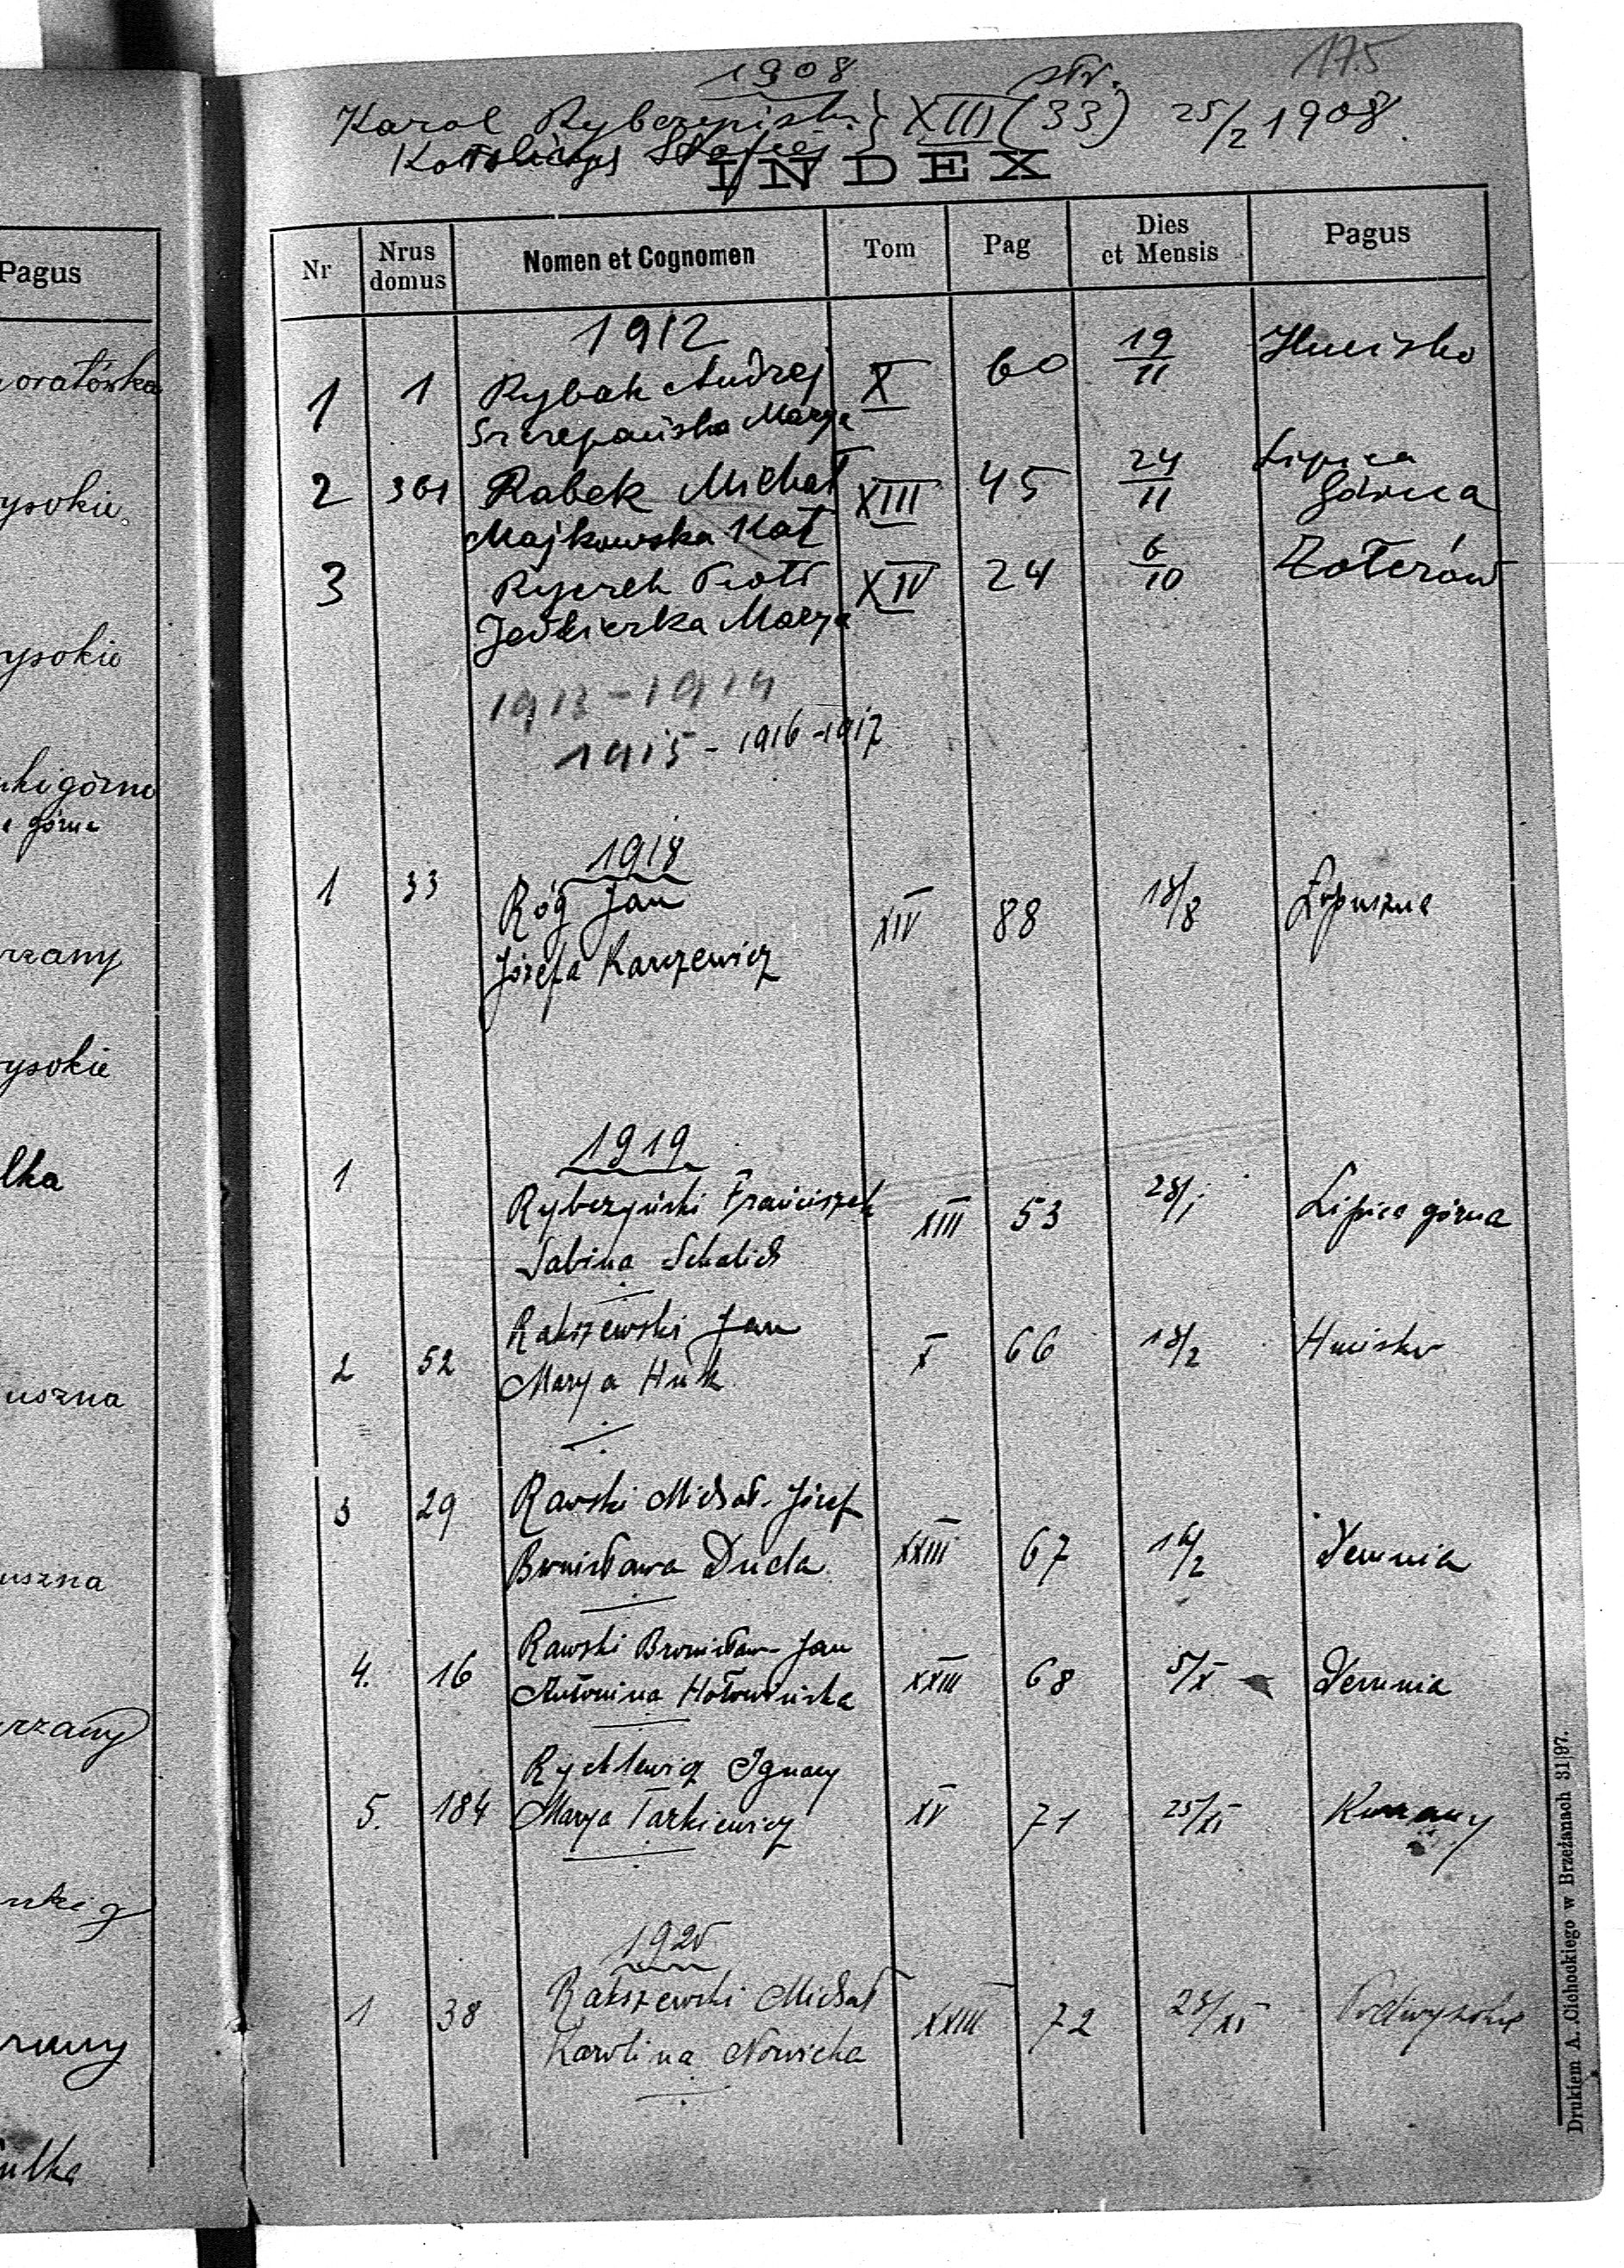 175
1908
str.
Karol Rybczyński } XIII (33) 25/2 1908.
INDEX
Nr Nrus domus Nomen et Cognomen Tom Pag Dies et Mensis Pagus
1912
1 1 Rybak Andrzej X 60 19/11 Hucisko
Szczepańska Marya
2 361 Rabek Michał XIII 45 24/11 Lipica Górna
Majkowska Kat
3 Piotr XIV 24 6/10
Marya
1913-1914
1915-1916-1917
1918
1 33 Róg Jan XIV 88 18/8 Łopuszna
Józefa Karczewicz
1919
1 Rybczyński Franciszek XIII 53 28/I Lipica górna
Sabina
2 52 Rakszewski Jan X 66 18/2 Hucisko
Marya Huk
3 29 Rawski Michał-Józef XXIII 67 Demnia
Bronisława Duda
4. 16 Rawski Bronisław-Jan XXIII 68 5/X Demnia
Antonina
5. 184 Rychlewicz Ignacy XV 71 25/XI Kurzany
Marya Tarkiewicz
1920
1 38 Rakszewski Michał XXIII 72 Podwysokie
Karolina Nowicka
Drukiem A. Cichockiego w Brzeżanach 31|97.
Pagus
oratówka
ysokie
ysokie
górne
górne
rzany
ysokie
lka
uszna
uszna
rzany
lka